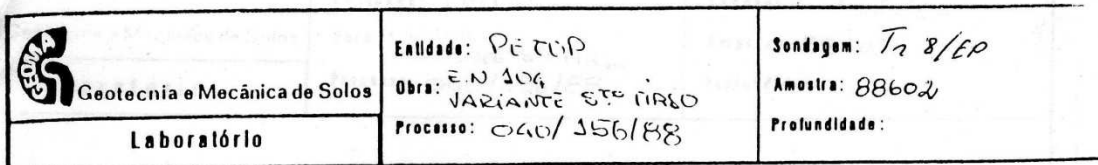 GEOMA
Geotecnia e Mecânica de Solos
Laboratório
Entidade: PETOP
Obra: E.N 104
VARIANTE STO TIRSO
Processo: 040/156/88
Sondagem: Tr 8/EP
Amostra: 88602
Profundidade: